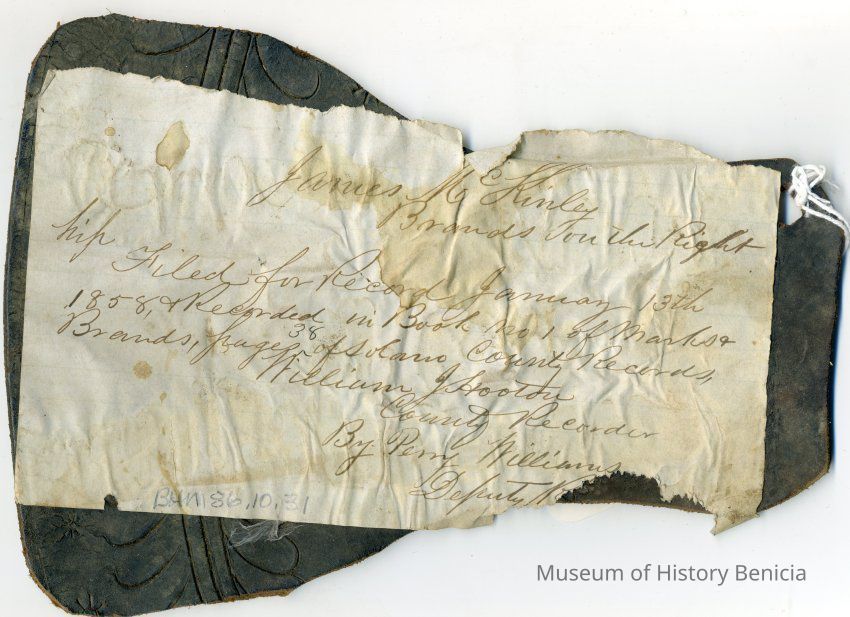 James McKinley
Brands on the Right
hip
Filed for Record January 13th
1858, & Recorded in Book no 1 of Marks &
Brands, page 38 of Solano County Records,
William
County Recorder
By Perry Williams
Deputy
BHM 86.10.31
Museum of History Benicia